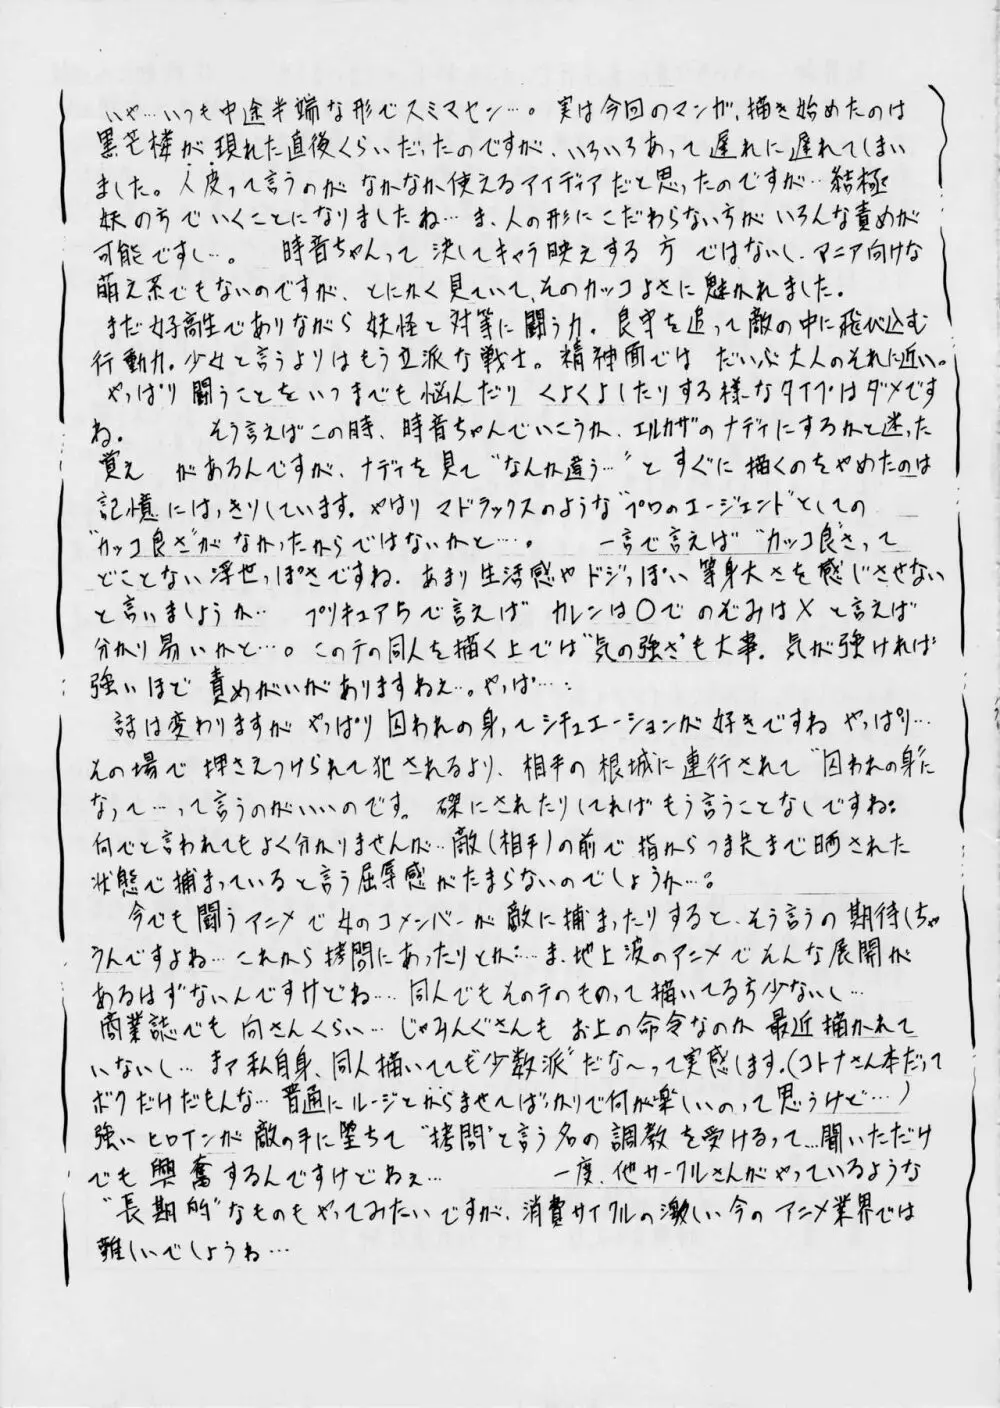 いや…いつも中途半端な形でスミマセン…。実は今回のマンガ、描き始めたのは
黒芒楼が現れた直後くらいだったのですが、いろいろあって遅れに遅れてしまい
ました。人皮って言うのがなかなか使えるアイディアだと思ったのですが…結極
妖の方でいくことになりましたね…ま、人の形にこだわらない方がいろんな責めが
可能ですし…。 時音ちゃんって決してキャラ映えする方ではないし、マニア向けな
萌え系でもないのですが、とにかく見ていて、そのカッコよさに魅かれました。
まだ女子高生でありながら妖怪と対等に闘う力。良守を追って敵の中に飛び込む
行動力。少女と言うよりはもう立派な戦士。精神面ではだいぶ大人のそれに近い。
やっぱり闘うことをいつまでも悩んだりくよくよしたりする様なタイプはダメです
ね。 そう言えばこの時、時音ちゃんでいこうか、エルカザのナディにするかと迷った
覚えがあるんですが、ナディを見て“なんか違う…”とすぐに描くのをやめたのは
記憶にはっきりしています。やはりマドラックスのような“プロのエージェント”としての
“カッコ良さ”がなかったからではないかと…。 一言で言えば“カッコ良さ”って
どことない浮世っぽさですね。あまり生活感やドジっぽい等身大さを感じさせない
と言いましょうか… プリキュア5で言えばカレンは○でのぞみは×と言えば
分かり易いかと…。このテの同人を描く上では“気の強さ”も大事。気が強ければ
強いほど責めがいがありますねぇ…。やっぱ…。
話は変わりますがやっぱり囚われの身ってシチュエーションが好きですねやっぱり…
その場で押さえつけられて犯されるより、相手の根城に連行されて“囚われの身”に
なって…って言うのがいいのです。磔にされたりしてればもう言うことなしですね。
何でと言われてもよく分かりませんが…敵(相手)の前で指からつま先まで晒された
状態で捕まっていると言う屈辱感がたまらないのでしょうか…。
今でも闘うアニメで女のコメンバーが敵に捕まったりすると、そう言うの期待しちゃ
うんですよね…これから拷問にあったりとか…ま、地上波のアニメでそんな展開が
あるはずないんですけどね…同人でもそのテのものって描いてる方少ないし…
商業誌でも向さんくらい…じゃみんぐさんもお上の命令なのか最近描かれて
いないし…まァ私自身、同人描いてても“少数派”だな～って実感します。(コトナさん本だって
ボクだけだもんな…普通にルージとからませてばっかりで何が楽しいのって思うけど…)
強いヒロインが敵の手に堕ちて“拷問”と言う名の調教を受けるって…聞いただけ
でも興奮するんですけどねぇ… 一度、他サークルさんがやっているような
“長期的”なものもやってみたいですが、消費サイクルの激しい今のアニメ業界では
難しいでしょうね…